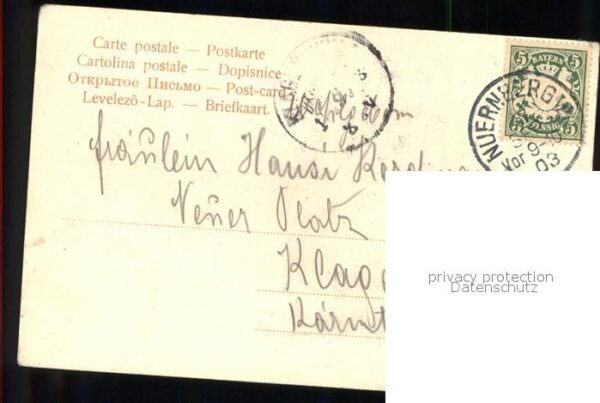 Carte postale — Postkarte
Cartolina postale — Dopisnice
Открытое Письмо — Post-card
Levelező-Lap. — Briefkaart.
BAYERN
5 5
5 5
PFENNIG
NUERNBERG
9-10
Vor
03
Fräulein Hansi
Neuer Platz
Klag
Kärnt
privacy protection
Datenschutz